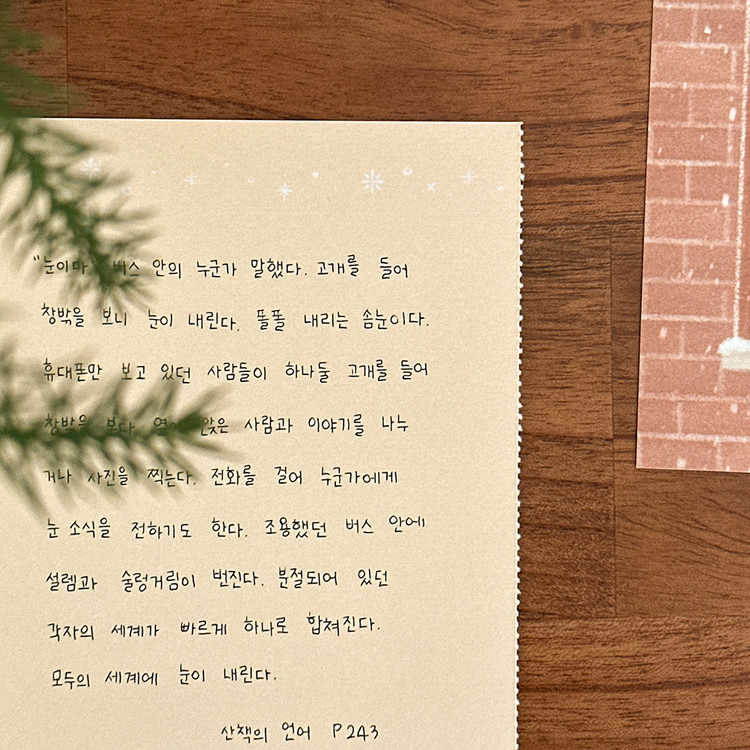 "눈이다" 버스 안의 누군가 말했다. 고개를 들어
창밖을 보니 눈이 내린다. 플플 내리는 솜눈이다.
휴대폰만 보고 있던 사람들이 하나둘 고개를 들어
창밖을 보다. 옆에 앉은 사람과 이야기를 나누
거나 사진을 찍는다. 전화를 걸어 누군가에게
눈 소식을 전하기도 한다. 조용했던 버스 안에
설렘과 술렁거림이 번진다. 분절되어 있던
각자의 세계가 빠르게 하나로 합쳐진다.
모두의 세계에 눈이 내린다.
산책의 언어 P243